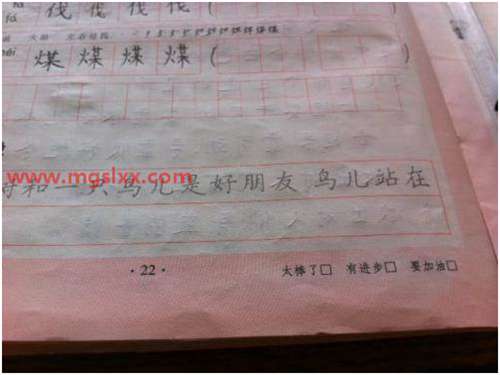 伐 伐 伐 伐
煤 煤 煤 煤 (
www.mgslxx.com
和一只鸟儿是好朋友 鸟儿站在
·22· 太棒了□ 有进步□ 要加油□